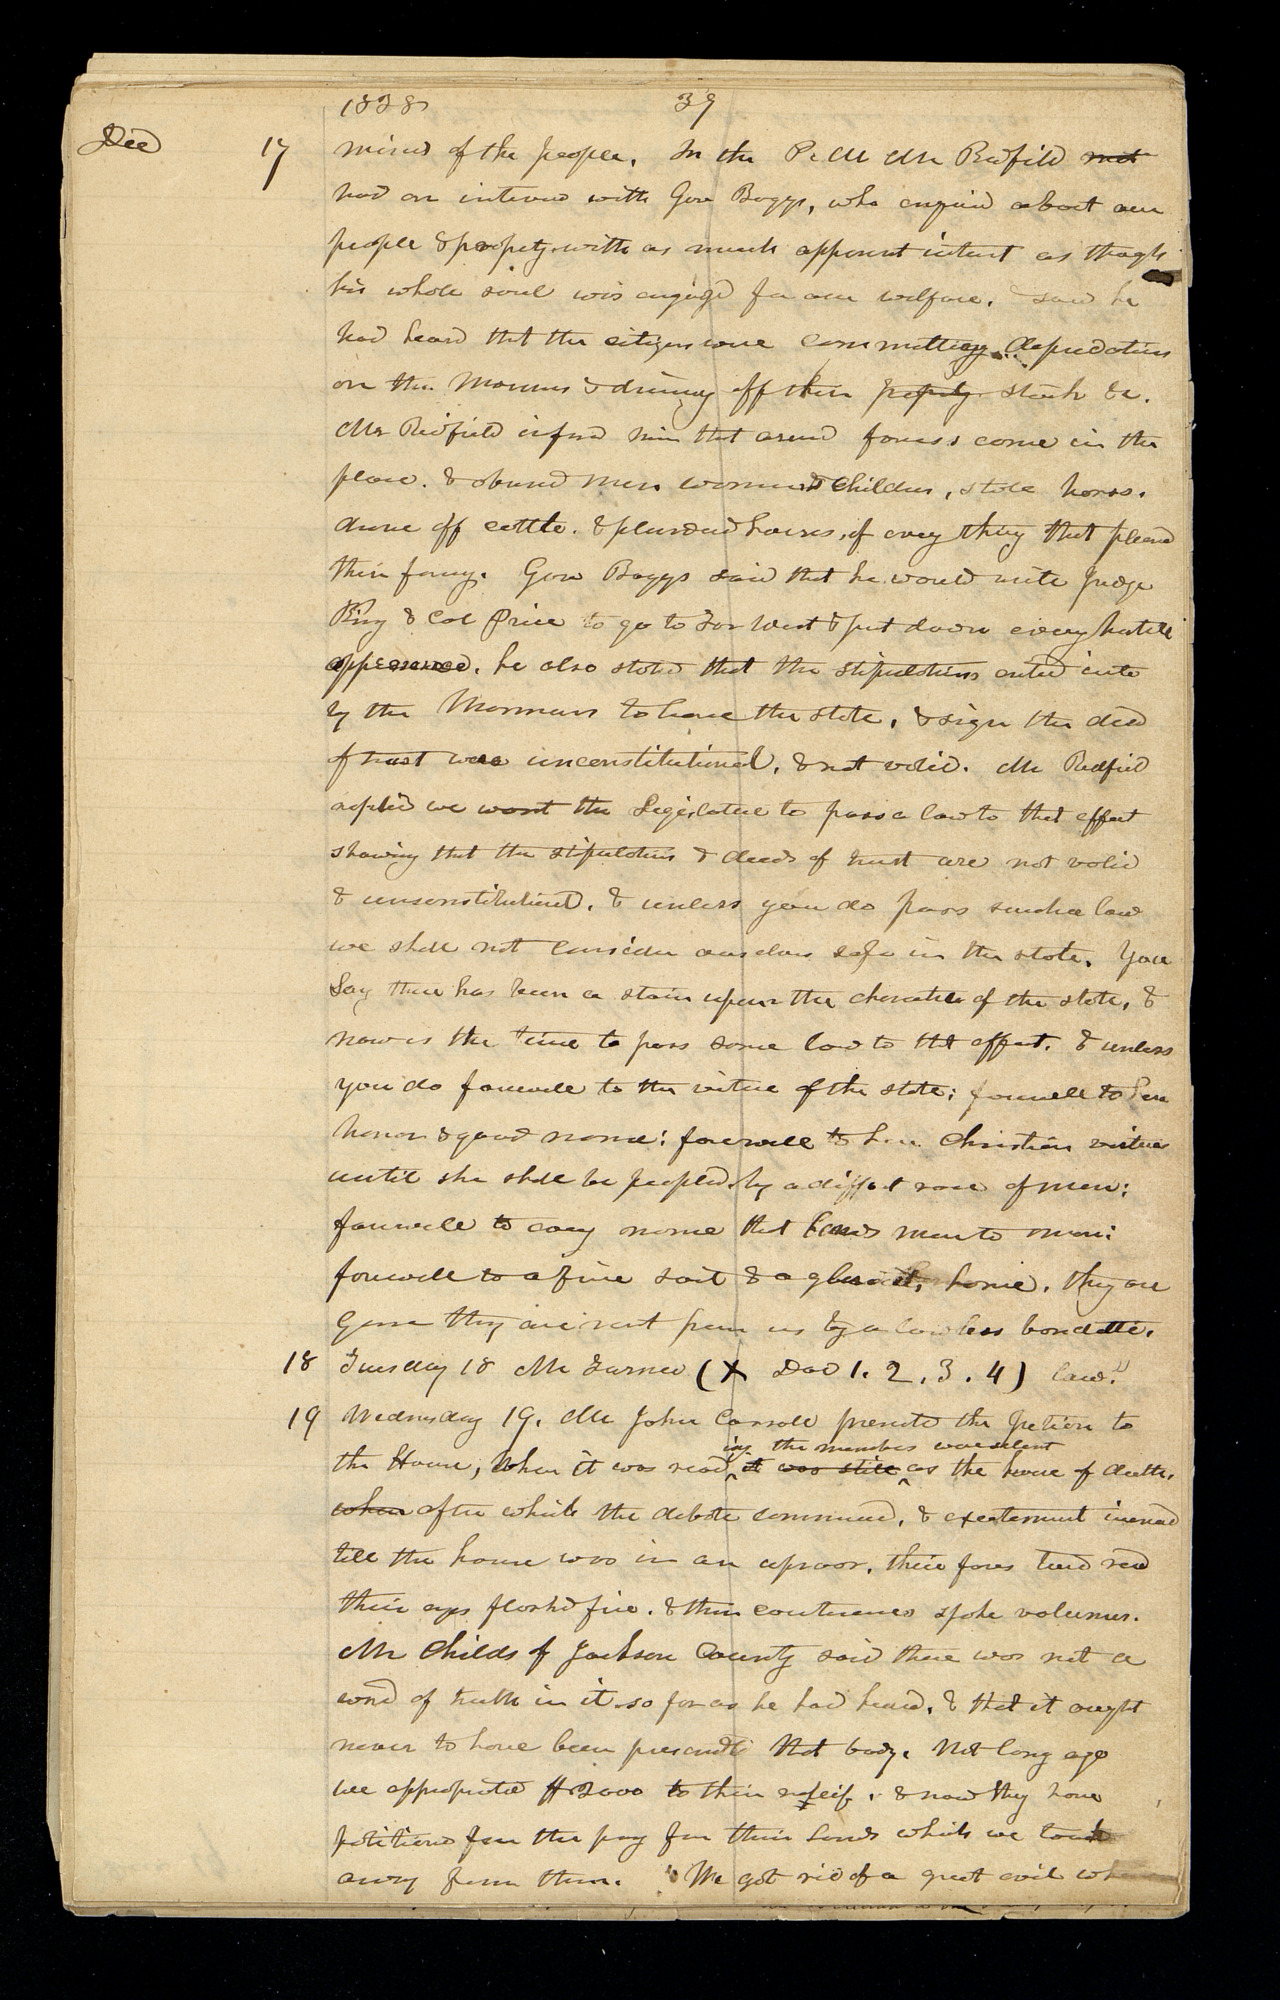 1838 39
Dec 17 minds of the people. In the P. M. Mr Redfield met
had an interview with Gov Boggs, who enquired about our
people & property with as much apparent interest as though
his whole soul was engaged for our welfare. Said he
had heard that the citizens were committing depredations
on the Mormons & driving off their property stock &c.
Mr Redfield informed him that armed forces come in the
place. & abused men women & children, stole horses.
drove off cattle. & plundered houses, of every thing that pleased
their fancy. Gov Boggs said that he would write Judge
King & Col Price to go to Far West & put down every hostile
appearance. he also stated that the stipulations entered into
by the Mormons to leave the state, & sign the deed
of trust were unconstitutional, & not valid. Mr Redfield
replied we want the Legislature to pass a law to that effect
showing that the stipulations & deeds of trust are not valid
& unconstitutional. & unless you do pass such a law
we shall not consider ourselves safe in the state. You
say there has been a stain upon the character of the state, &
now is the time to pass some law to that effect. & unless
you do farewell to the virtue of the state; farewell to her
honor & good name; farewell to her Christian virtue
until she shall be peopled by a different race of men;
farewell to every name that binds man to man;
farewell to a fine soil & a glorious home, they are
gone they are rent from us by a lawless bandetti.
18 Tuesday 18 Mr Turner (X Doc 1. 2. 3. 4) law."
19 Wednesday 19. Mr John Corroll presented the petition to
ing the members were silent
the House, When it was read it was still as the house of death.
when after which the debate commenced, & excitement increased
till the house was in an uproar. their faces turned red
their eyes flashed fire. & their countenances spoke volumes.
Mr Childs of Jackson County said there was not a
word of truth in it so far as he had heard. & that it ought
never to have been presented that body. Not long ago
we appropriated $2000 to their releif. & now they have
petitioned for the pay for their lands which we took
away from them. "We got rid of a great evil when